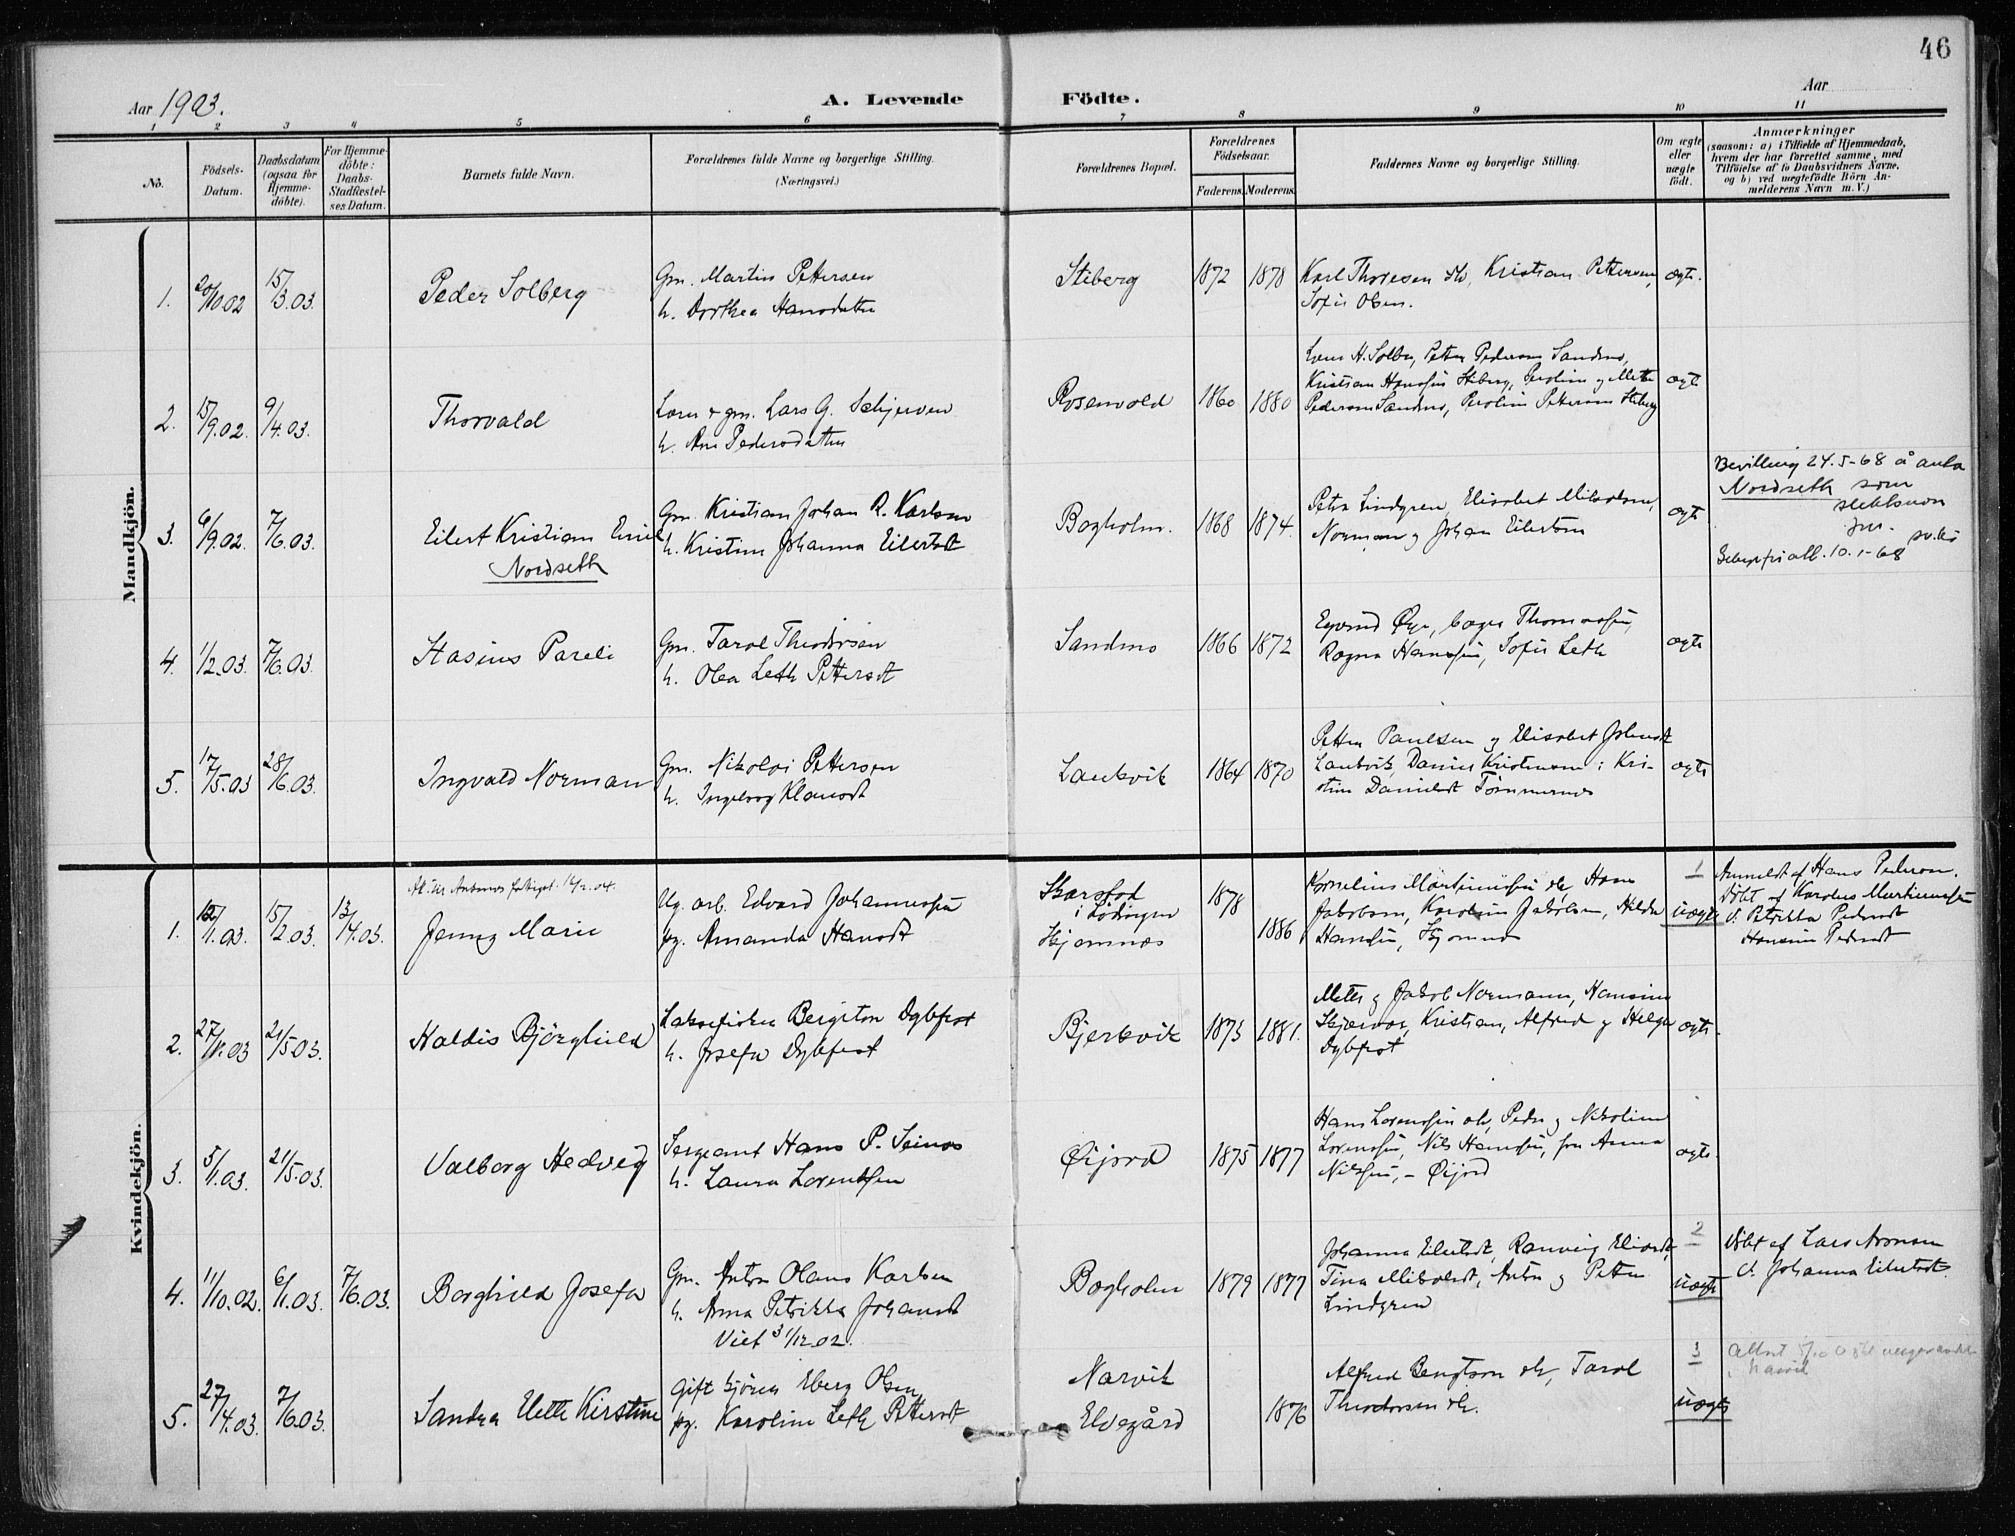 46
Aar 1903.
A. Levende Födte.
Aar
1 2 3 4 5 6 7 8 9 10 11
No.
Födsels-Datum.
Daabsdatum (ogsaa for Hjemme-döbte).
For Hjemme-döbte: Daabs-Stadfæstel-ses Datum.
Barnets fulde Navn.
Forældrenes fulde Navne og borgerlige Stilling. (Næringsvei.)
Forældrenes Bopæl.
Forældrenes Födselsaar.
Faderens. Moderens.
Faddernes Navne og borgerlige Stilling.
Om ægte eller uægte födt.
Anmærkninger
(saasom: a) i Tilfælde af Hjemmedaab,
hvem der har forrettet samme, med
Tilföielse af to Daabsvidners Navne,
og b) ved uægtefödte Börn An-
melderens Navn m. V.)
Mandkjön.
1. 20/10.02 15/3.03. Peder Solberg
Gm. Martin Pettersen
h. Dorthea Hansdatter
Stiberg 1872 1878
Karl Thoresen Kristian Pettersen,
Sofie Olsen.
ægte.
2. 15/9.02. 9/4.03. Thorvald
Lars G. Schjerven
h. Ane Pedersdatter
Rosenvold 1860 1880
Petter Pedersen Sandmo,
Kristian Hansen Stiberg, Peroline og Mette
Pedersen Sandmo, Peroline Pettersen Stiberg
ægte
3. 6/9.02. 7/6.03. Eilert Kristian Emil
Nordseth
Gm. Kristian Johan R. Karlsen
h. Kristine Johanna Eilertsdt
Bogholm. 1868 1874.
Petra Lindgren, Elisabet
Norman og Johan Eilertsen
ægte
Bevilling 24.5-68 å anta
Nordseth som
slektsnavn
10.1-68
4. 1/2.03. 7/6.03. Hasius Pareli
Gm. Tarol Theodorsen
h. Olea Leth Pettersdt
Sandmo 1866 1872
Eyvind Øye, Thomassen,
Ragna Hansen, Sofie Leth
ægte
5. 17/5.03 28/6.03. Ingvald Norman
Gm. Nikolai Pettersen
h. Ingeborg Klausdt
Lankvik 1864 1870
Petter Paulsen og Elisabet Johnsdt
Lankvik, Daniel Kristensen; Kri-
stine Danielsdt Tömmernes
ægte
Kvindekjön.
1. 12/1.03. 15/2.03. 13/4.03. Jenny Marie
Ug. arb. Edvard Johannessen
pg. Amanda Hansdt
Skarstad
i Lödingen
Skjomnes
1878
1886
Kornelius Martinussen Hans
Jakobsen, Karoline Jakobsen, Hilda
Hansen, Skjomnes
1
uægte
Anmeldt af Hans Pedersen.
Döbt af Karolus Martinussen
v. Petrikka Pedersdt
Hansine Pedersdt
2. 27/1.03 21/5.03. Haldis Bjørghild
Bergiton Dybfest
h. Josefa Dybfest
Bjerkvik 1873 1881.
Mette og Jakob Normann, Hansine
Kristian, Alfred og Helga
Dybfest
ægte.
3. 5/1.03. 21/5.03. Valborg Hedvig
Sergeant Hans P. Seines
h. Laura Lorentsen
Øijord 1875 1877
Hans Lorentsen Peder og Nikoline
Lorentsen, Nils Hansen, fru Anna
Nilssen, – Øijord
ægte.
4. 11/10.02. 6/1.03. 7/6.03. Borghild Josefa
Gm. Anton Olaus Karlsen
h. Anna Petrikka Johansdt
Viet 31/12 02.
Bogholm 1879 1877
Johanna Eilertsdt, Ranveig
Tina Anton og Petter
Lindgren
2
uægte
Döbt af Lars Aronsen
v. Johanna Eilertsdt
5. 27/4.03. 7/6.03. Sandra Elette Kirstine
Gift Eberg Olsen,
pg. Karoline Leth Pettersdt
Narvik
Elvegård
1876
Alfred Bengtson Tarol
Theodorsen
3
uægte
Narvik